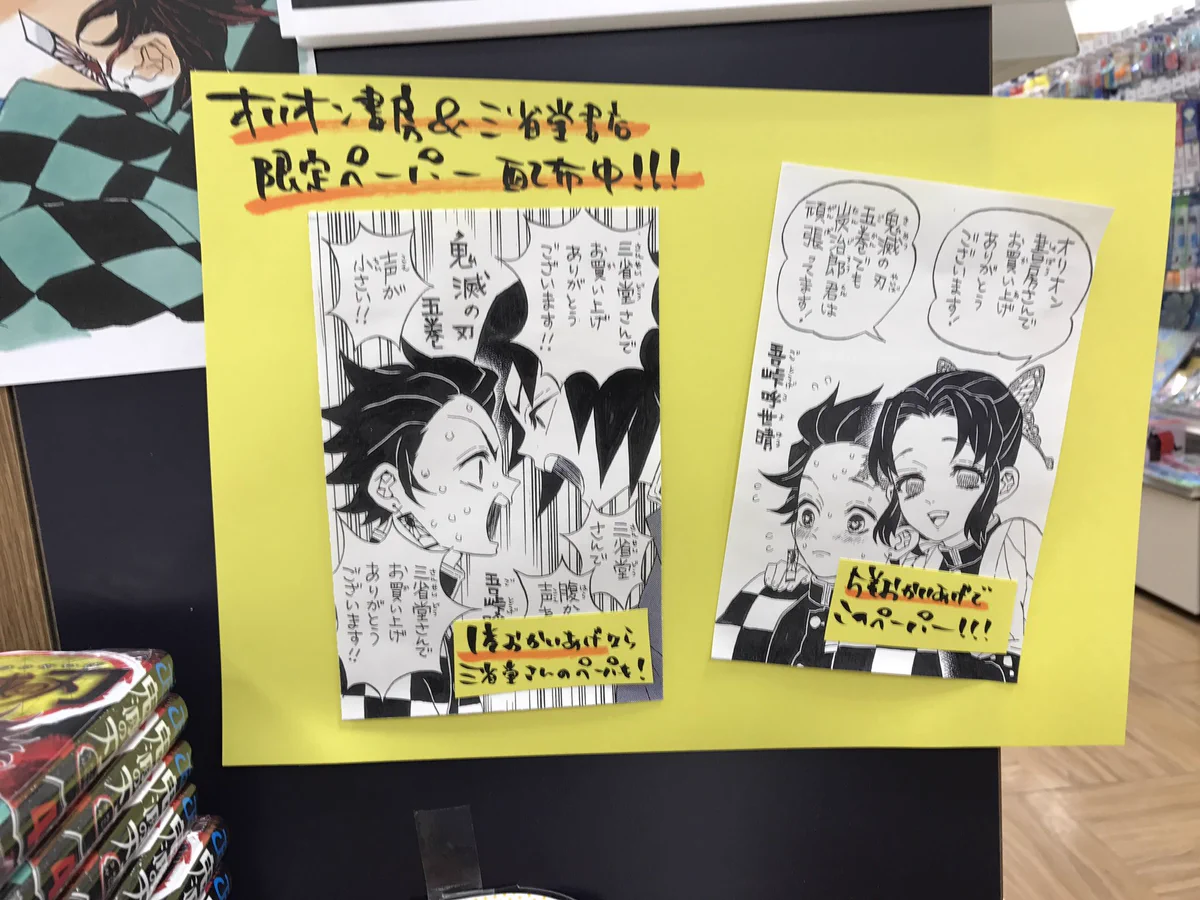 オリオン書房&三省堂書店
限定ペーパー配布中!!!
三省堂さんで
お買い上げ
ありがとう
ございます!!
鬼滅の刃
五巻
声が
小さい!!
三省堂
さんで
腹か
声を
三省堂さんで
お買い上げ
ありがとう
ございます!!
1巻おかいあげなら
三省堂さんのペーパーも!
オリオン
書房さんで
お買い上げ
ありがとう
ございます!
鬼滅の刃
五巻でも
炭治郎君は
頑張ってます!
吾峠呼世晴
5巻おかいあげで
このペーパー!!!